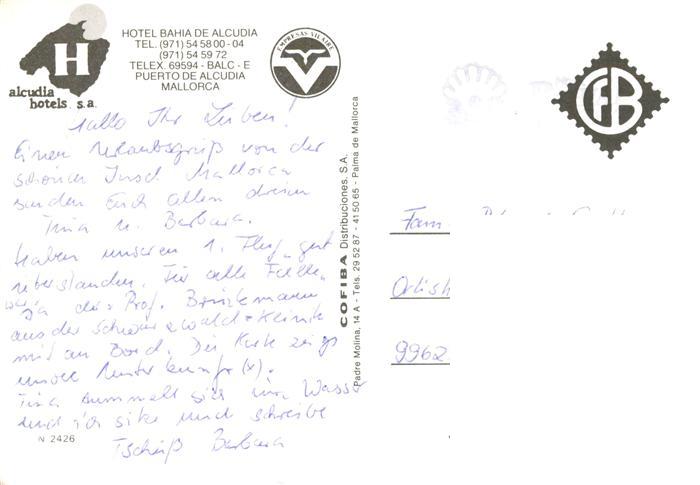 HOTEL BAHIA DE ALCUDIA
TEL. (971) 54 58 00 - 04
(971) 54 59 72
TELEX. 69594 - BALC - E
PUERTO DE ALCUDIA
MALLORCA
H
alcudia
hotels s.a.
EMPRESAS VILAIRE
CFB
Hallo Ihr Lieben!
Einen Urlaubsgruß von der
schönen Insel Mallorca
senden Euch allen
Tina u. Barbara.
Haben unseren 1. Flug gut
überstanden. Für alle Fälle
war ja der Prof. Brinkmann
aus der Schwarzwald-Klinik
mit an Bord. Die Karte zeigt
unsere Unterkunft (x).
Tina tummelt sich im Wasser
und ich sitze und schreibe
Tschüß Barbara
N 2426
COFIBA Distribuciones, S.A.
Padre Molina, 14 A - Tels. 29 52 87 - 41 50 65 - Palma de Mallorca
Fam
9962